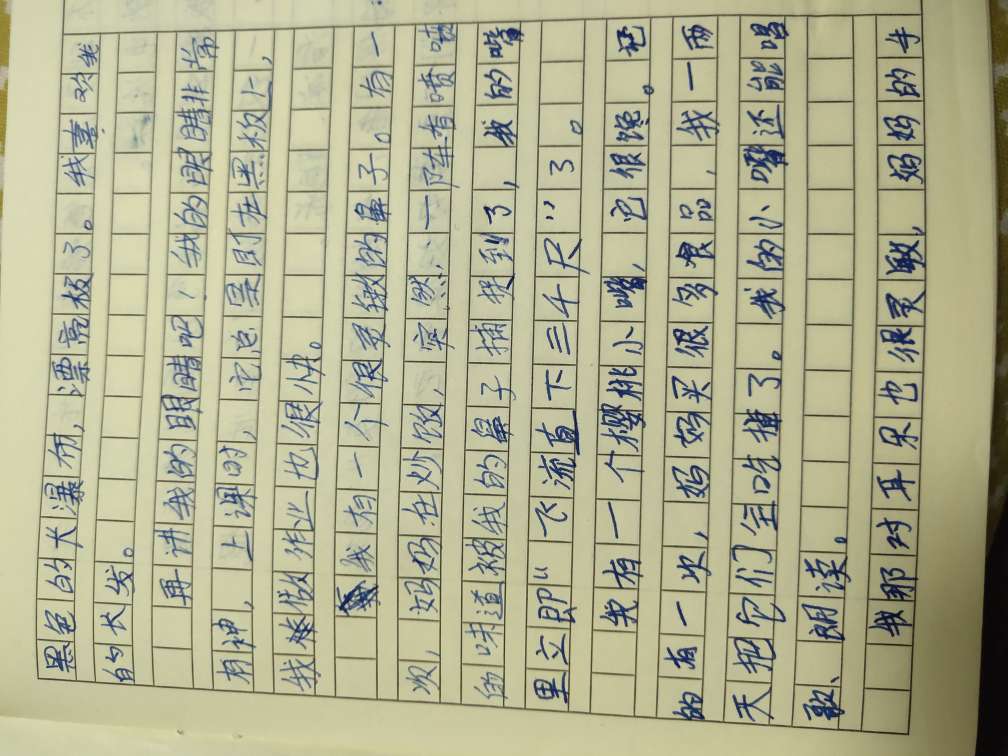 黑色的大瀑布,漂亮极了。我喜欢我
的长发。
再讲我的眼睛吧!我的眼睛非常
有神,上课时,它总是盯在黑板上,
我做作业也很快。
我有一个很灵敏的鼻子。有一
次,妈妈在炒饭,突然,一阵香喷喷
的味道被我的鼻子捕捉到了,我的嘴
里立即“飞流直下三千尺”了。
我有一个樱桃小嘴,它很馋。记
的有一次,妈妈买很多食品,我一两
天把它们全吃掉了。我的小嘴还能唱
歌、朗读。
我那对耳朵也很灵敏,妈妈的手